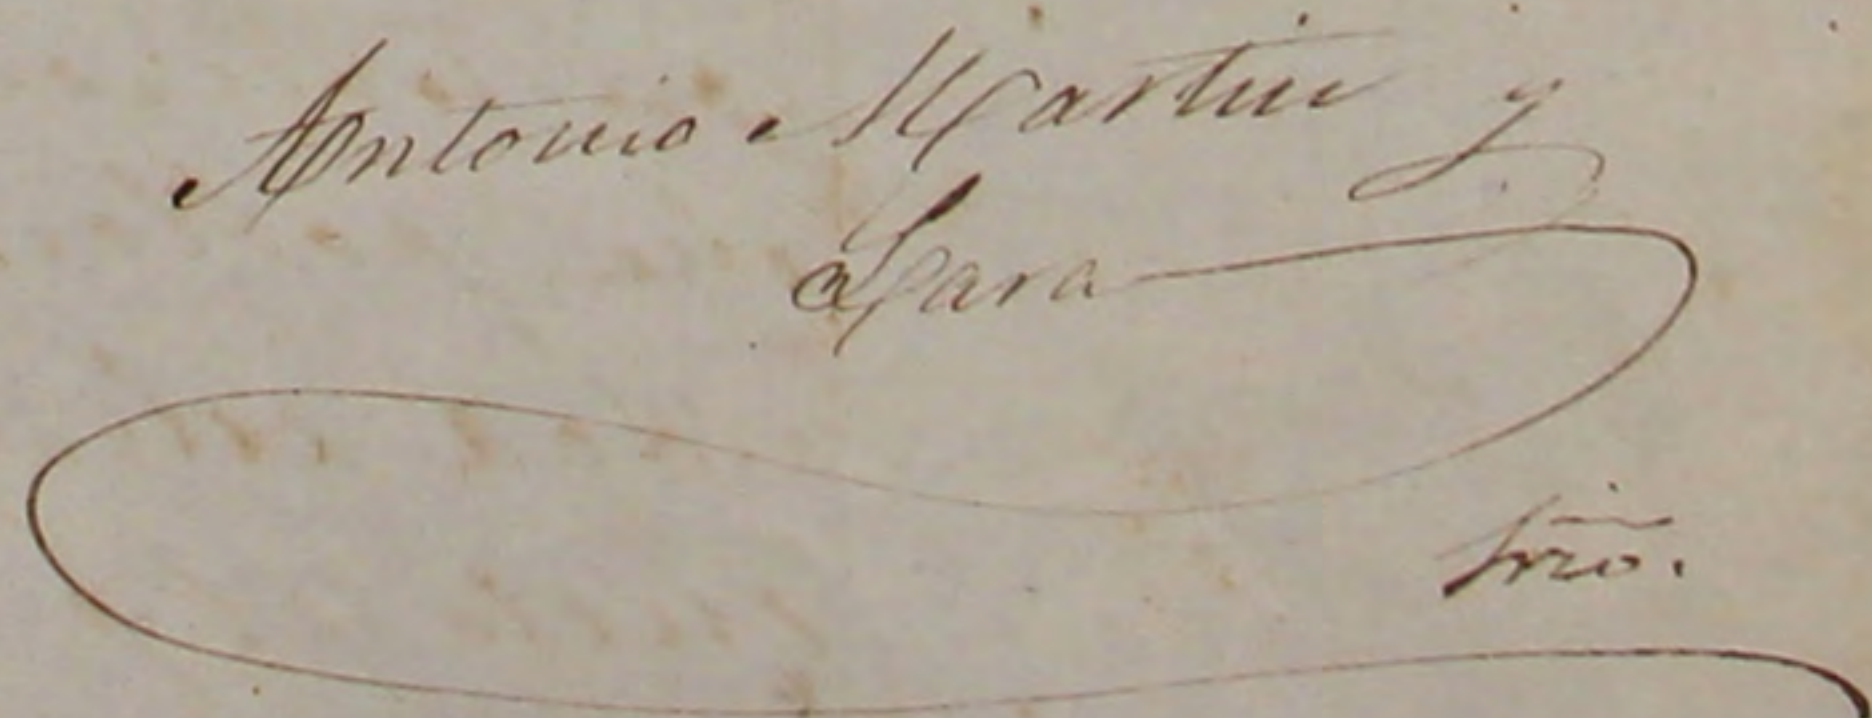 Antonio Martin y
Lara